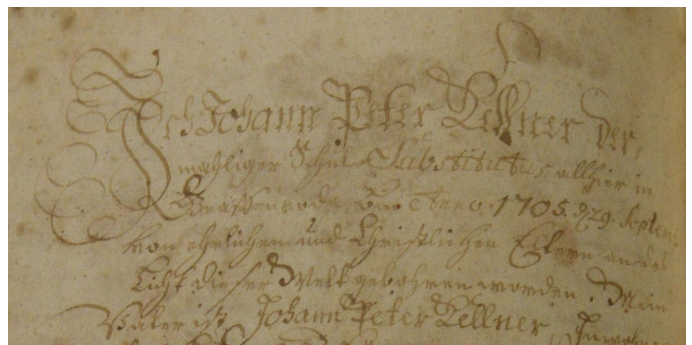 Ich Johann Peter Kellner der,
mahliger Schul Substitutus allhier in
Gräffenroda, bin Anno. 1705. d. 29. Septemb
von ehrlichen und Christlichen Eltern an das
Licht dieser Welt gebohren worden. Mein
Vater ist Johann Peter Kellner, Inwohn